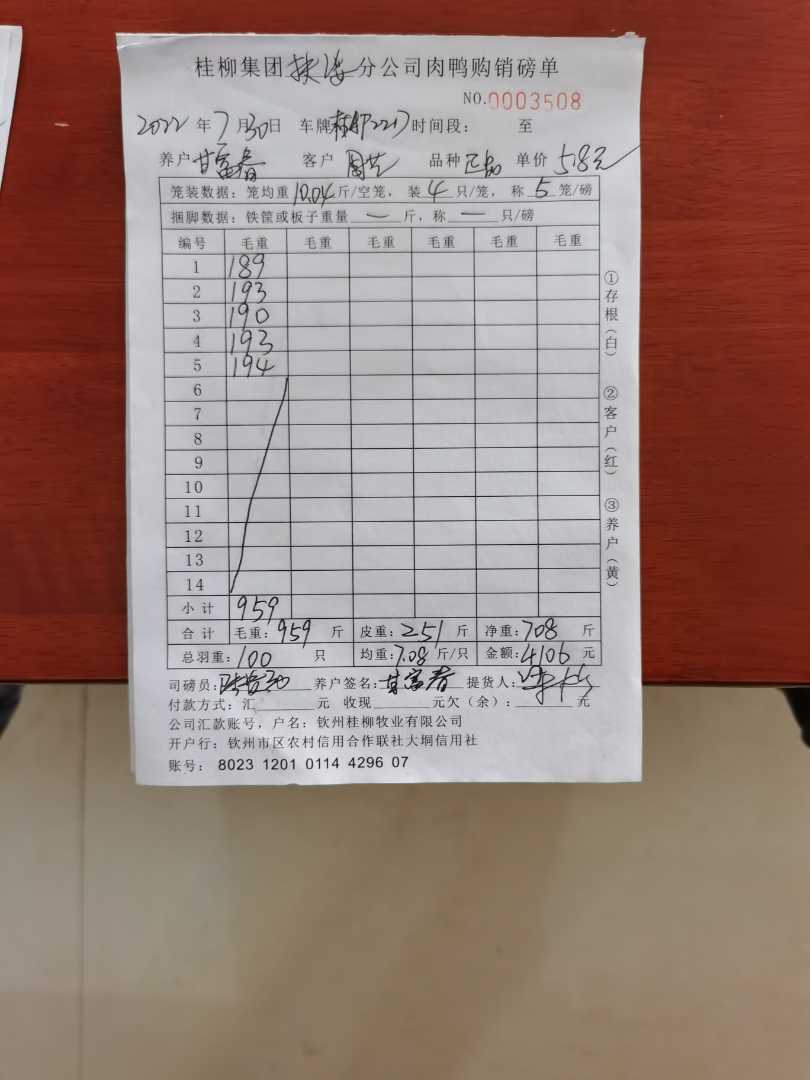 桂柳集团分公司肉鸭购销磅单
NO.0003508
2022年7月30日 车牌 时间段： 至
养户甘富春 客户 品种正品 单价5.8元
笼装数据：笼均重10.04斤/空笼，装4只/笼，称5笼/磅
捆脚数据：铁筐或板子重量一斤，称一只/磅
编号 毛重 毛重 毛重 毛重 毛重 毛重
1 189
2 193
3 190
4 193
5 194
6
7
8
9
10
11
12
13
14
小计 959
合计 毛重：959斤 皮重：251斤 净重：708斤
总羽重：100只 均重：7.08斤/只 金额：4106元
司磅员： 养户签名：甘富春 提货人：
付款方式：汇____元 收现____元欠（余）：____元
公司汇款账号，户名：钦州桂柳牧业有限公司
开户行：钦州市区农村信用合作联社大垌信用社
账号： 8023 1201 0114 4296 07
①存根（白）
②客户（红）
③养户（黄）